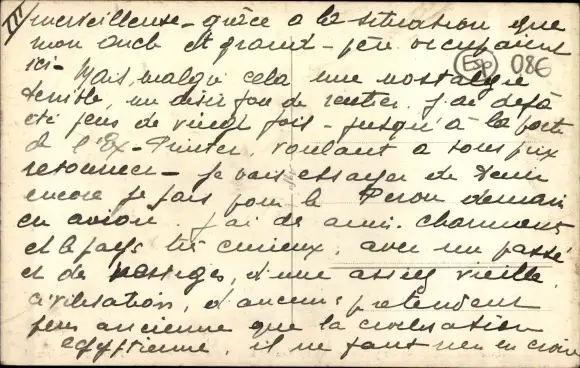 III
merveilleuse - grâce à la situation que
mon oncle et grand-père occupaient
ici - Mais, malgré cela une nostalgie
terrible, un désir fou de rentrer. J'ai déjà
été plus de vingt fois - jusqu'à la porte
de l'Ex-Printer, voulant à tous prix
retourner - Je vais essayer de tenir
encore je pars pour le Perou demain
en avion. J'ai de amis charmants
et le pays très curieux, avec un passé
et de vestiges, d'une assez vieille
civilisation, d'aucuns pretendent
plus ancienne que la civilisation
egyptienne, il ne faut rien en croire
Esp 086